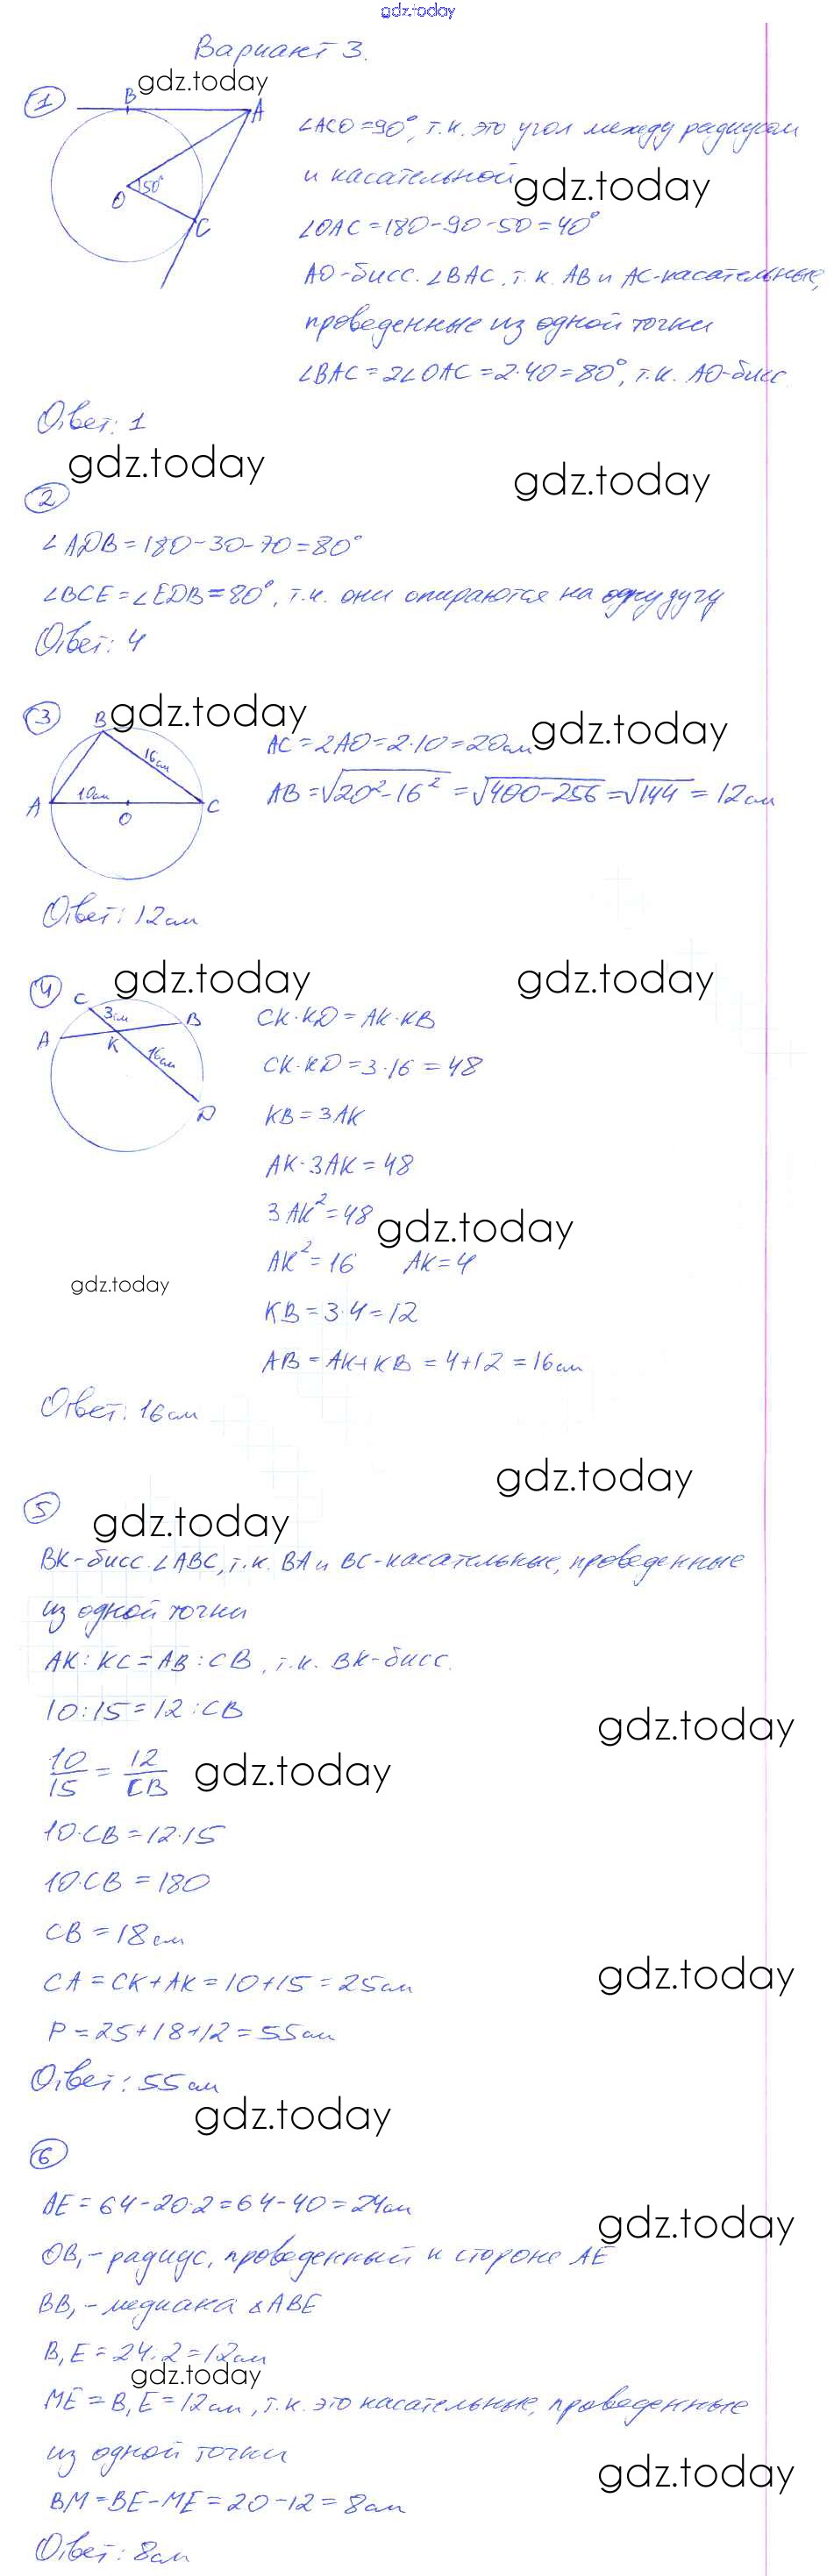 gdz.today
Вариант 3.
gdz.today
1
B
A
50°
O
C
∠ACO=90°, т.к. это угол между радиусом
и касательной
gdz.today
∠OAC=180-90-50=40°
AO-бисс. ∠BAC, т.к. AB и AC-касательные,
проведенные из одной точки
∠BAC=2∠OAC=2·40=80°, т.к. AO-бисс
Ответ: 1
gdz.today
gdz.today
2
∠ADB=180-30-70=80°
∠BCE=∠EDB=80°, т.к. они опираются на одну дугу
Ответ: 4
3
B
gdz.today
gdz.today
16см
10см
A
O
C
AC=2AO=2·10=20см
AB=√20²-16²=√400-256=√144=12см
Ответ: 12см
4
gdz.today
gdz.today
C
3см
B
A
K
16см
D
CK·KD=AK·KB
CK·KD=3·16=48
KB=3AK
AK·3AK=48
3AK²=48
gdz.today
AK²=16 AK=4
gdz.today
KB=3·4=12
AB=AK+KB=4+12=16см
Ответ: 16см
gdz.today
5
gdz.today
BK-бисс. ∠ABC, т.к. BA и BC-касательные, проведенные
из одной точки
AK:KC=AB:CB, т.к. BK-бисс.
10:15=12:CB
gdz.today
10/15=12/CB
gdz.today
10·CB=12·15
10·CB=180
CB=18см
CA=CK+AK=10+15=25см
gdz.today
P=25+18+12=55см
Ответ: 55см
gdz.today
6
AE=64-20·2=64-40=24см
gdz.today
OB₁-радиус, проведенный к стороне AE
BB₁-медиана ∆ABE
B₁E=24:2=12см
gdz.today
ME=B₁E=12см, т.к. это касательные, проведенные
из одной точки
gdz.today
BM=BE-ME=20-12=8см
Ответ: 8см